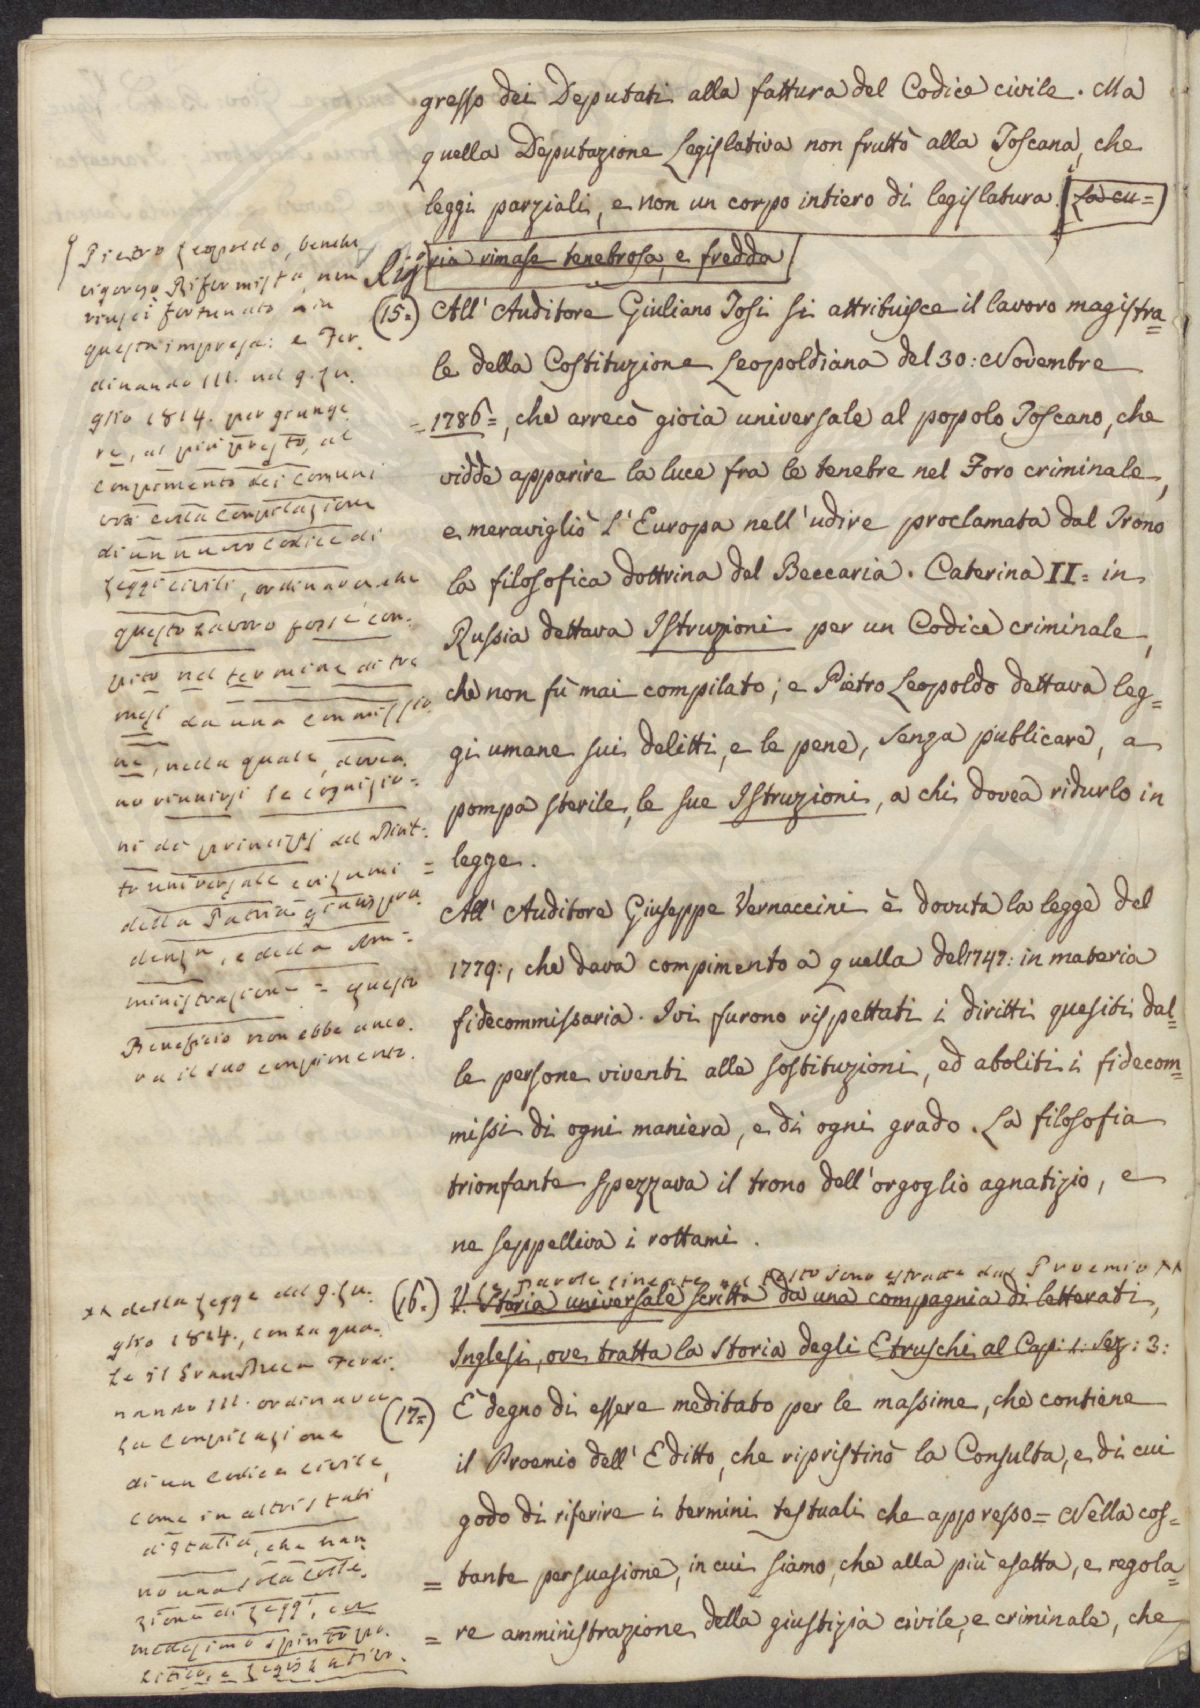 gresso dei Deputati alla fattura del Codice civile. Ma
quella Deputazione Legislativa non fruttò alla Toscana, che
leggi parziali, e non un corpo intiero di legislatura. La cu=
ria rimase tenebrosa, e fredda
(15=) All' Auditore Giuliano Tosi si attribuisce il lavoro magistra=
le della Costituzione Leopoldiana del 30: Novembre
= 1786=, che arrecò gioia universale al popolo Toscano, che
vidde apparire la luce fra le tenebre nel Foro criminale,
e meravigliò l'Europa nell'udire proclamata dal Trono
la filosofica dottrina del Beccaria. Caterina II= in
Russia dettava Istruzioni per un Codice criminale,
che non fù mai compilato; e Pietro Leopoldo dettava leg=
gi umane sui delitti, e le pene, senza publicare, a
pompa sterile, le sue Istruzioni, a chi dovea ridurlo in
legge.
All' Auditore Giuseppe Vernaccini è dovuta la legge del
1779:, che dava compimento a quella del 1747: in materia
fidecommissaria. Ivi furono rispettati i diritti quesiti dal=
le persone viventi alle sostituzioni, ed aboliti i fidecom=
missi di ogni maniera, e di ogni grado. La filosofia
trionfante spezzava il trono dell'orgoglio agnatizio, e
ne seppelliva i rottami.
Le parole lineate nel testo sono estratte dal Proemio ××
(16=) V. Storia universale scritta da una compagnia di letterati,
Inglesi, ove tratta la Storia degli Etruschi al Cap: 1: Sez: 3:
(17=) È degno di essere meditato per le massime, che contiene
il Proemio dell'Editto, che ripristinò la Consulta, e di cui
godo di riferire i termini testuali che appresso= Nella cos=
= tante persuasione, in cui siamo, che alla più esatta, e regola=
= re amministrazione della giustizia civile, e criminale, che
Pietro Leopoldo, benche
vigoroso Riformista, non
riuscì fortunato in
questa impresa: e Fer.
dinando III. nel 9. Lu.
glio 1814. per giunge
re, al più presto, al
compimento dei comuni
voti colla compilazione
di un nuovo codice di
Leggi civili, ordinava che
questo Lavoro fosse com.
pito nel termine di tre
mesi da una commissio.
ne, nella quale dovea.
no riunirsi le cognizio=
ni dei principj del Dirit=
to universale, ed i lumi =
della Patria giurispru.
denza, e della Am=
ministrazione = questo
Beneficio non ebbe anco.
ra il suo compimento.
×× della Legge del 9. Lu.
glio 1814., con la qua.
le il Gran Duca Ferdi.
nando III. ordinava
la compilazione
di un codice civile,
come in altri stati
d'Italia, che han
no una sola colle.
zione di Leggi, con
medesimo spirito po.
litico, e Legislativo.